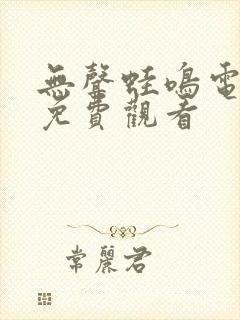 無聲蛙鳴電
免費觀看
常麗君